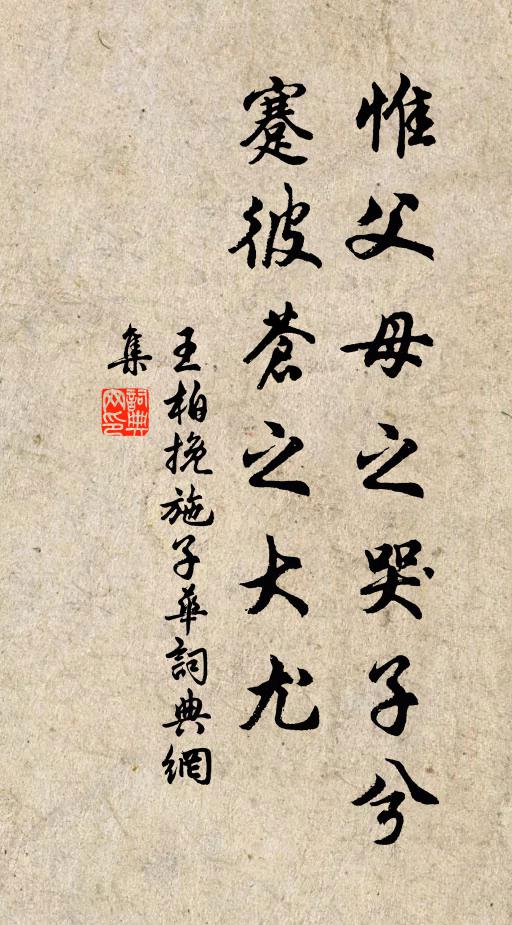 惟父母之哭子兮
蹇彼蒼之大尤
王柏挽施子華詞典網
集
詞典
网印